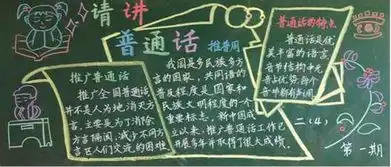 请讲
普通话 推普周
推广普通话
推广全国普通话
并不是人为地消灭方
言，主要是为了消除
方言隔阂，减少不同方
言区人们交流的困难
我国是多民族多方
言的国家，共同语的
普及程度是国家和
民族文明程度的一个
重要标志。新中国成
立以来，推广普通话工作已
开展多年并取得了很大成绩。
普通话的特点
普通话是优
美丰富的语言，
音节结构中元
音占优势，四个
二（4）
第一期